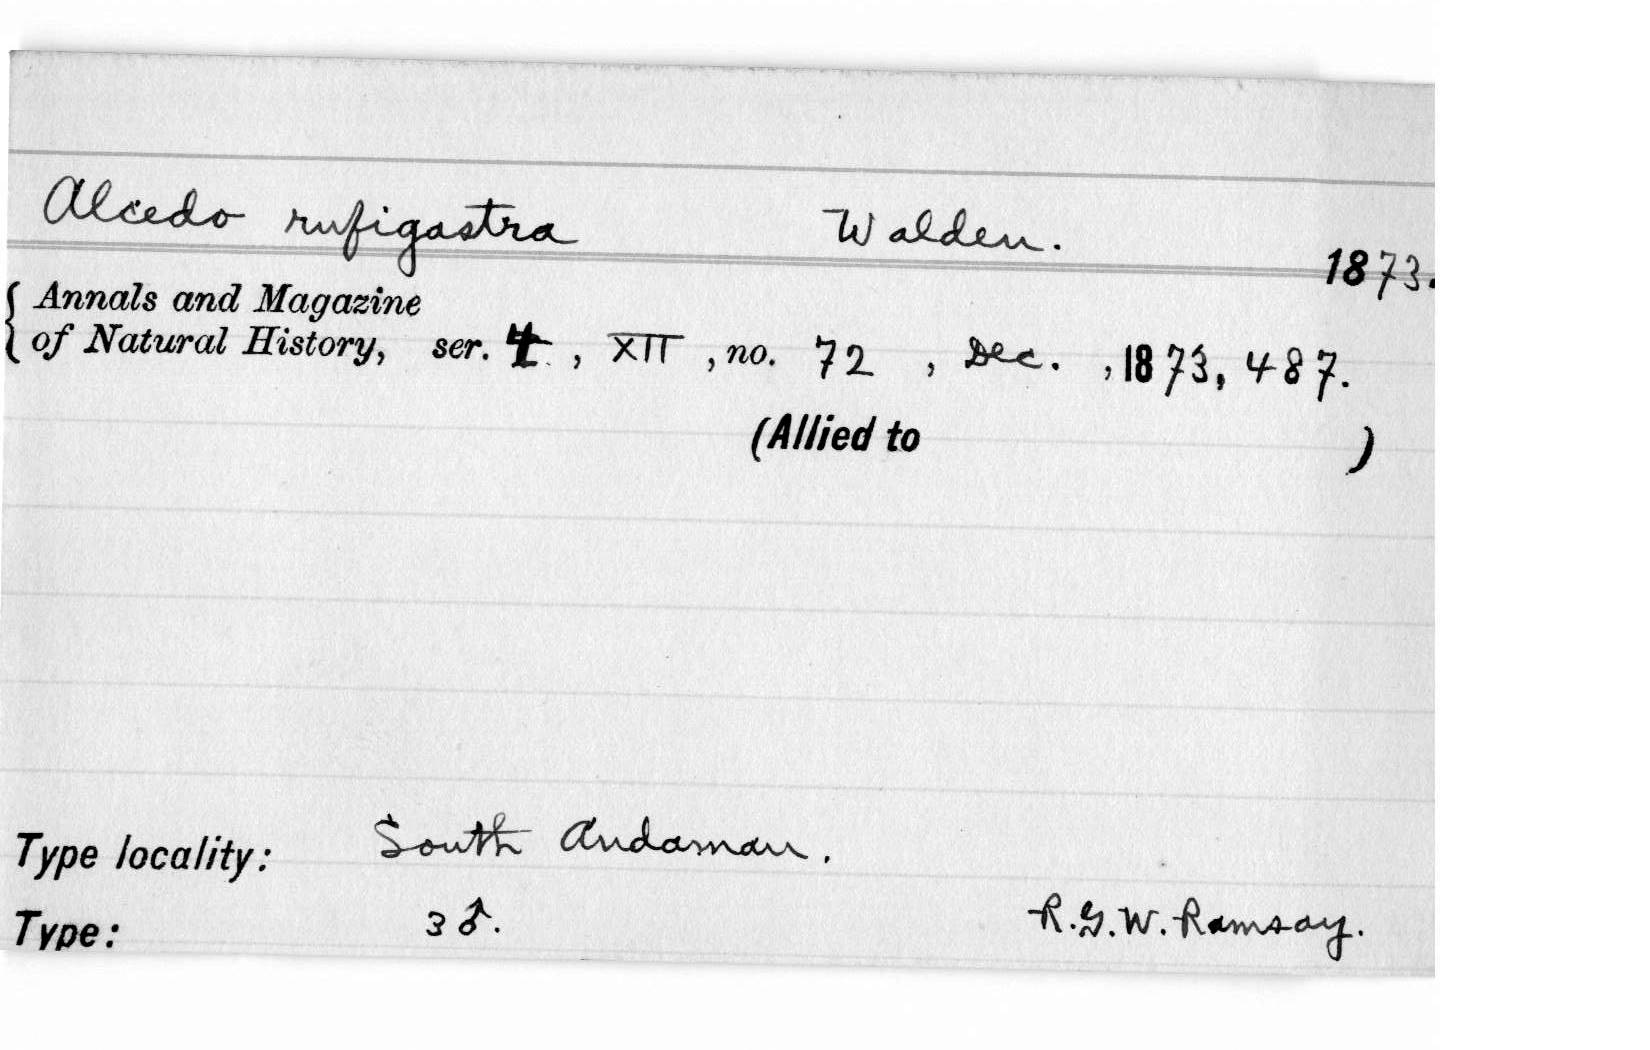 Alcedo rufigastra Walden. 1873.
{ Annals and Magazine
of Natural History, ser. 4, XII, no. 72, Dec., 1873, 487.
(Allied to )
Type locality: South Andaman.
Type: 3 ♂. R.G.W. Ramsay.